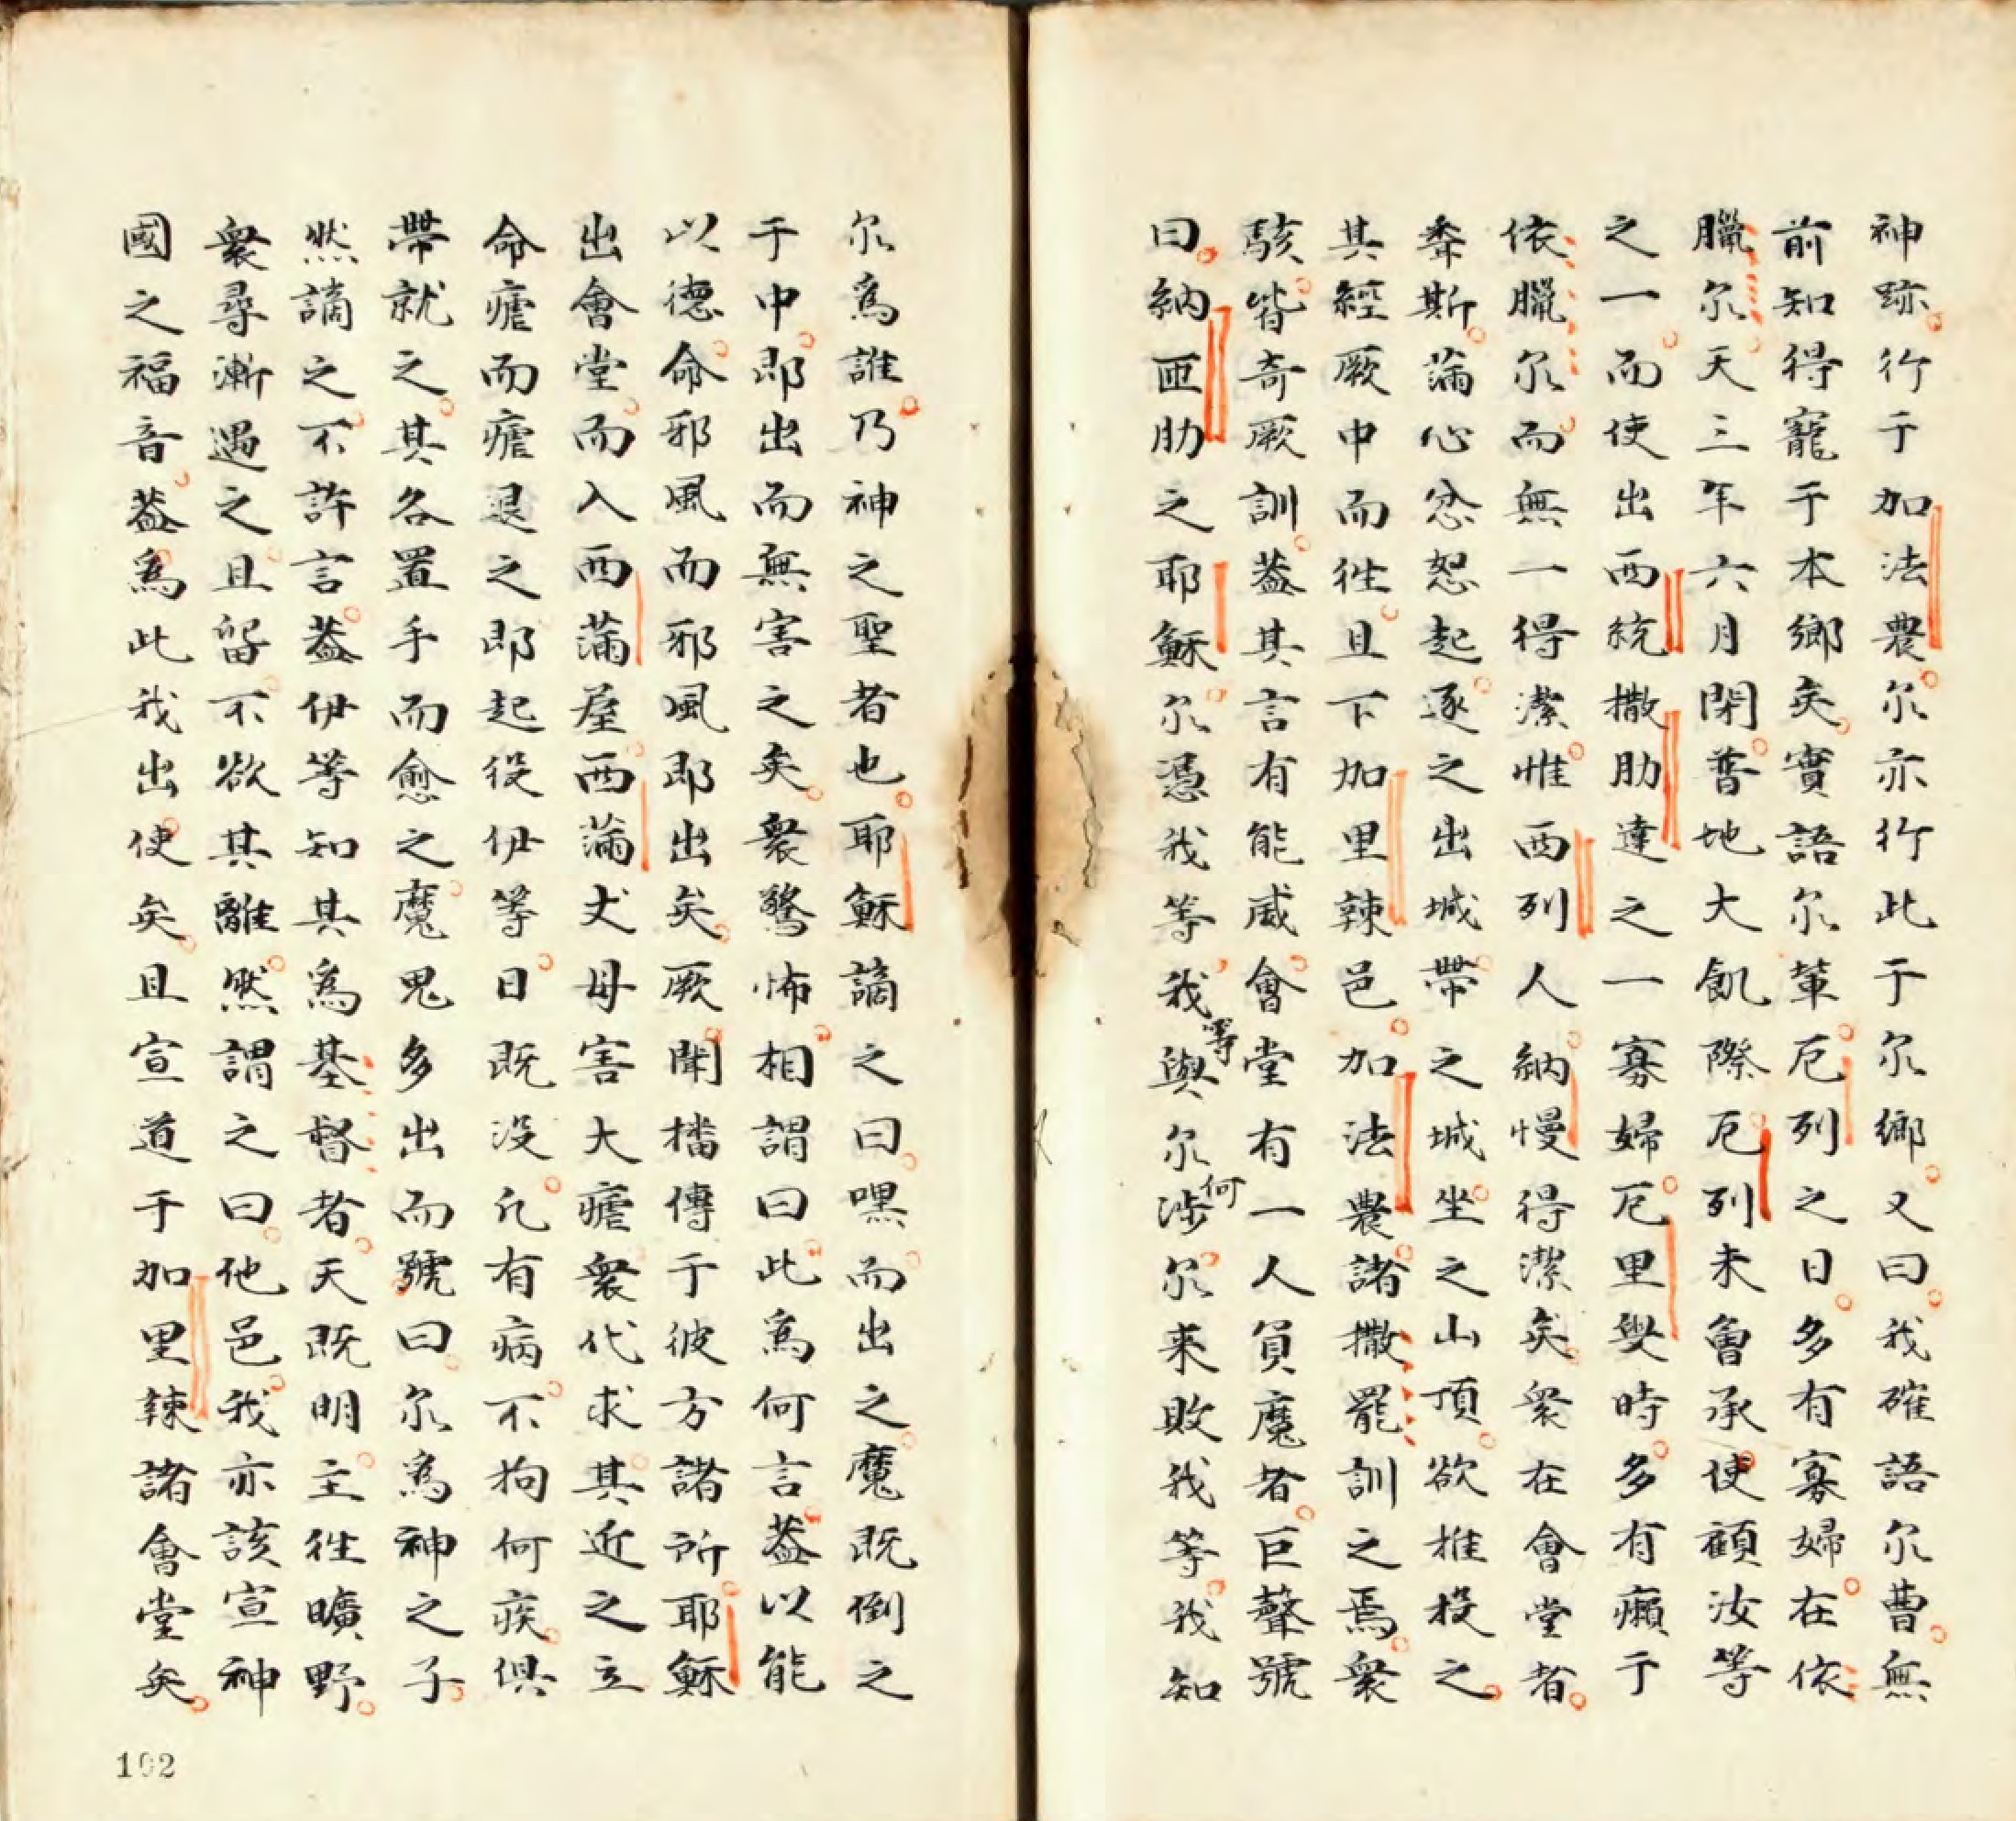 神跡行于加法農尔亦行此于尔鄉又曰我確語尔曹無
前知得寵于本鄉矣實語尔軰厄列之日多有寡婦在依
臘尔天三年六月閉普地大飢際厄列未曾承使顧汝等
之一而使出西統撒肋達之一寡婦厄里叟時多有癩于
依臘尔而無一得潔惟西列人納慢得潔矣衆在會堂者
聞斯滿心忿怒起逐之出城帶之城坐之山頂欲推投之
其經厥中而徃且下加里辣邑加法農諸撒罷訓之焉衆
駭皆奇厥訓葢其言有能威會堂有一人負魔者巨聲號
曰納匝肋之耶穌尔憑我等我等與尔何涉尔来敗我等我知
尔為誰乃神之聖者也耶穌謫之曰嘿而出之魔既倒之
于中即出而無害之矣衆驚怖相謂曰此為何言葢以能
以德命邪風而邪風即出矣厥聞播傳于彼方諸所耶穌
出會堂而入西滿屋西滿丈母害大瘧衆代求其近之立
命瘧而瘧退之即起役伊等日既沒凢有病不拘何疾俱
帶就之其各置手而愈之魔鬼多出而號曰尔為神之子
然謫之不許言葢伊等知其為基督者天既明主徃曠野
衆尋漸遇之且留不欲其離然謂之曰他邑我亦該宣神
國之福音葢為此我出使矣且宣道于加里辣諸會堂矣
102